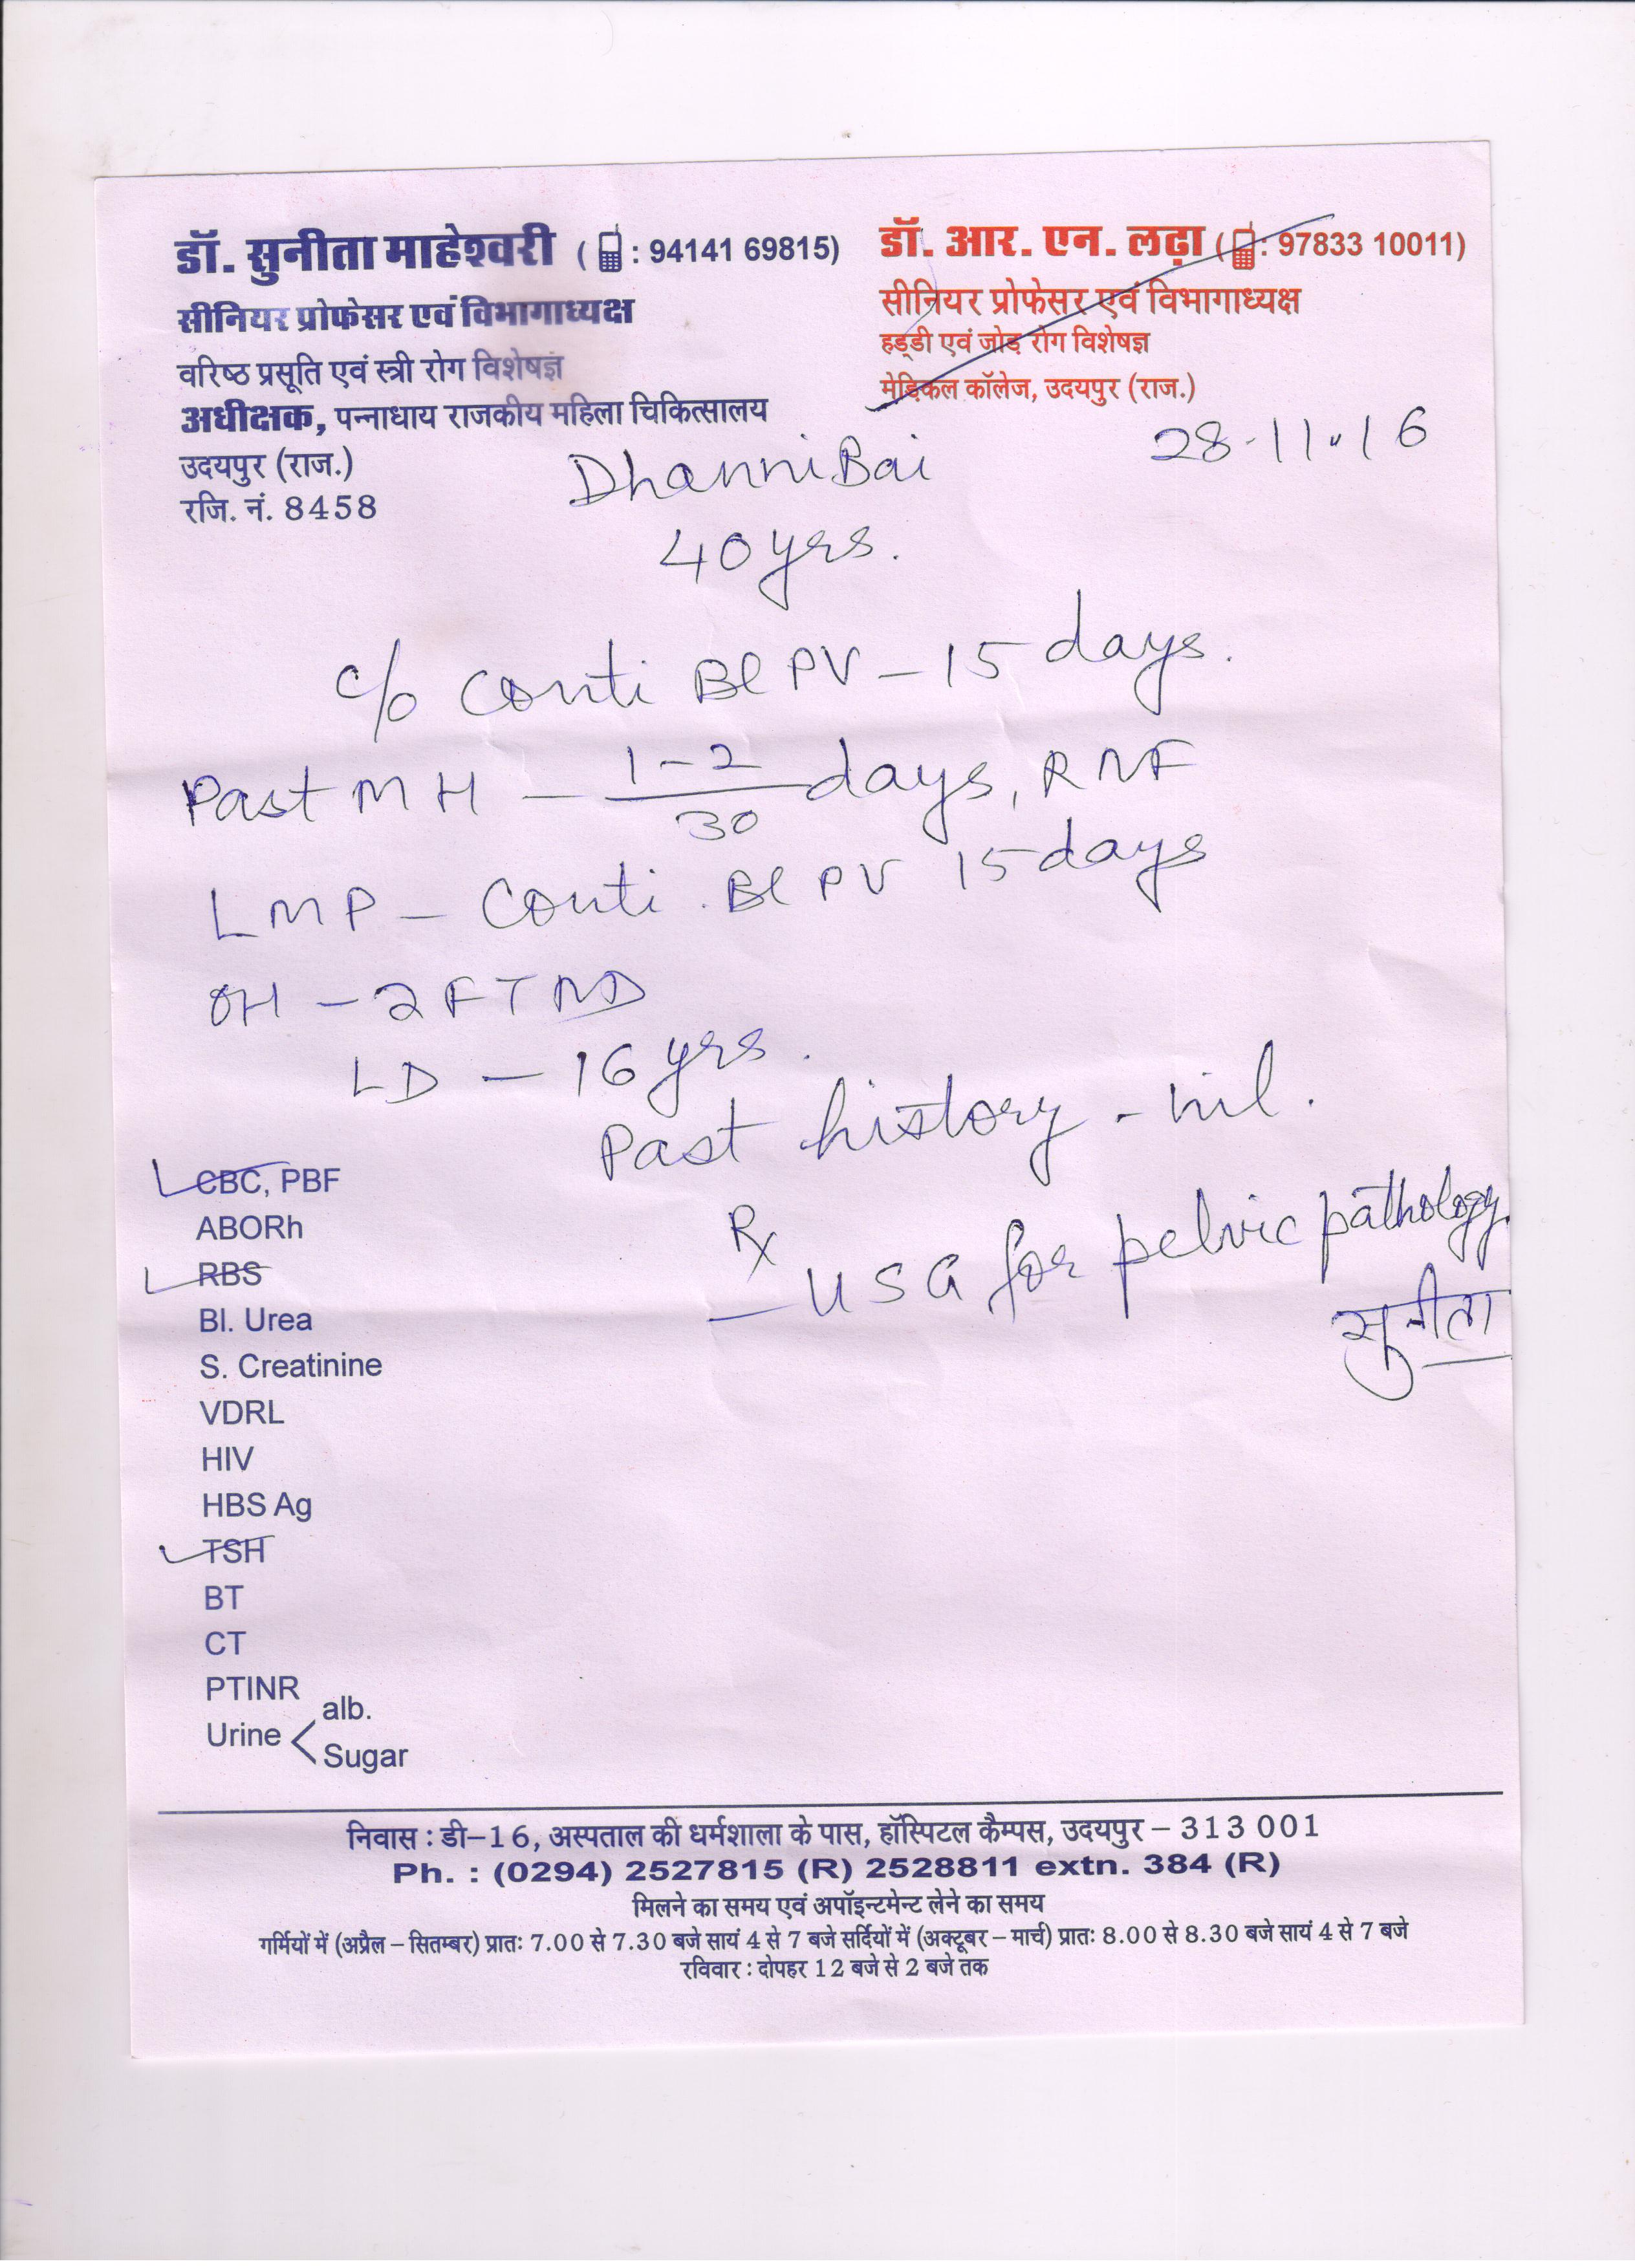 डॉ. सुनीता माहेश्वरी ( : 94141 69815)
सीनियर प्रोफेसर एवं विभागाध्यक्ष
वरिष्ठ प्रसूति एवं स्त्री रोग विशेषज्ञ
अधीक्षक, पन्नाधाय राजकीय महिला चिकित्सालय
उदयपुर (राज.)
रजि. नं. 8458
डॉ. आर. एन. लढ़ा ( : 97833 10011)
सीनियर प्रोफेसर एवं विभागाध्यक्ष
हड्डी एवं जोड़ रोग विशेषज्ञ
मेडिकल कॉलेज, उदयपुर (राज.)
28.11.16
Dhanni Bai
40 yrs.
c/o Conti Bl PV - 15 days.
Past MH - 1-2/30 days, RNF
LMP - Conti. Bl PV 15 days
OH - 2 FTND
LD - 16 yrs.
Past history - nil.
Rx
- USG for pelvic pathology.
सुनीता
CBC, PBF
ABORh
RBS
Bl. Urea
S. Creatinine
VDRL
HIV
HBS Ag
TSH
BT
CT
PTINR
Urine < alb.
Sugar
निवास : डी-16, अस्पताल की धर्मशाला के पास, हॉस्पिटल कैम्पस, उदयपुर - 313 001
Ph. : (0294) 2527815 (R) 2528811 extn. 384 (R)
मिलने का समय एवं अपॉइन्टमेन्ट लेने का समय
गर्मियों में (अप्रैल - सितम्बर) प्रातः 7.00 से 7.30 बजे सायं 4 से 7 बजे सर्दियों में (अक्टूबर - मार्च) प्रातः 8.00 से 8.30 बजे सायं 4 से 7 बजे
रविवार : दोपहर 12 बजे से 2 बजे तक